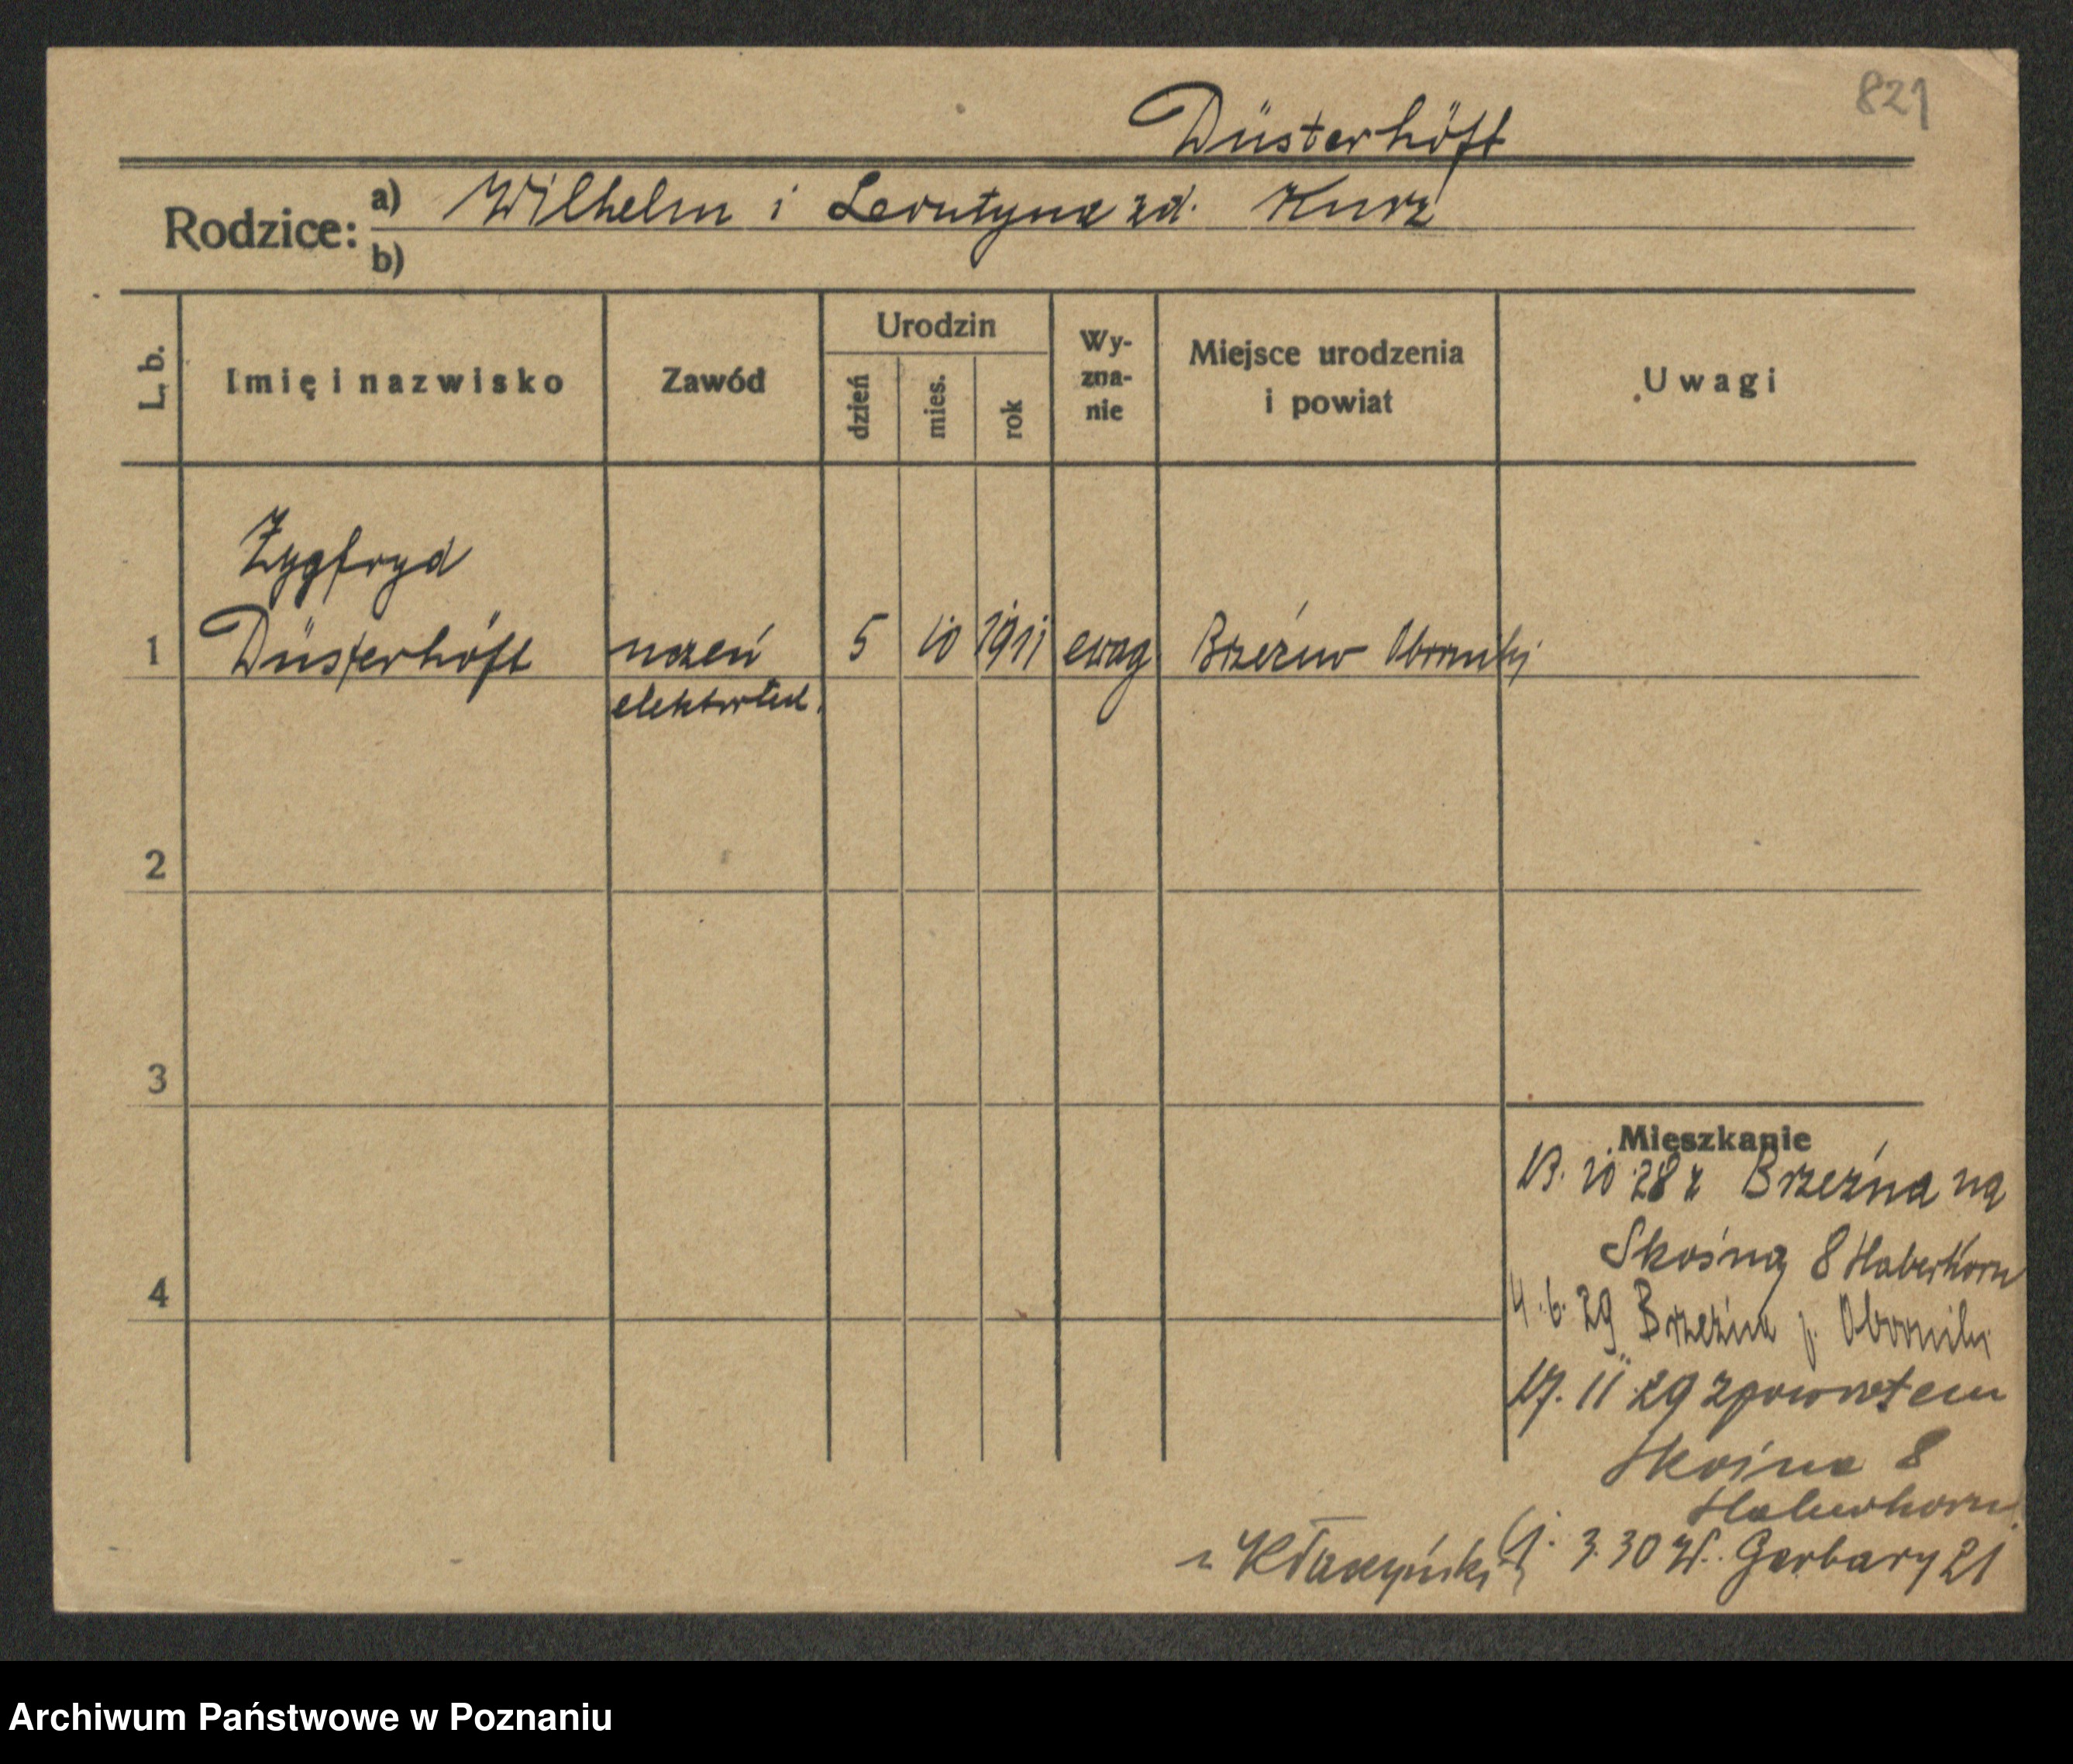 821
Düsterhöft
Rodzice: a) Wilhelm i Leontyna zd. Kurz
b)
L. b. Imię i nazwisko Zawód Urodzin dzień mies. rok Wy-zna-nie Miejsce urodzenia i powiat Uwagi
Zygfryd
1 Düsterhöft uczeń 5 10 1911 ewag Brzeźno Oborniki
elektrotech.
2
3
4
Mieszkanie
13. 10 28 z Brzeźna na
Skośną 8 Haberkorn
4. 6. 29 Brzeźna p. Oborniki
17. 11 29 zpowrotem
Skośna 8
Haberkorn
3. 30 W. Garbary 21
Archiwum Państwowe w Poznaniu